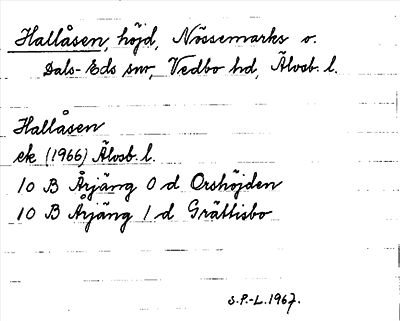 Hallåsen, höjd, Nössemarks o.
Dals-Eds snr, Vedbo hd, Älvsb. l.
Hallåsen
ek (1966) Älvsb. l.
10 B Årjäng 0 d Orshöjden
10 B Årjäng 1 d Grättisbo
S.P.-L. 1967.